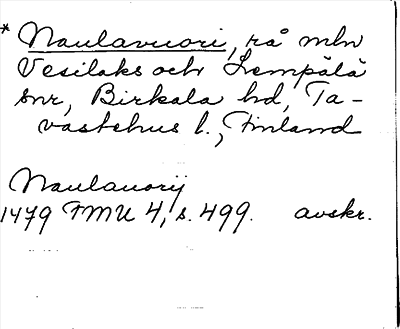 * Naulavuori, rå mln
Vesilaks och Lempälä
snr, Birkala hd, Ta-
vastehus l., Finland
Naulauorij
1479 FMU 4, s. 499. avskr.